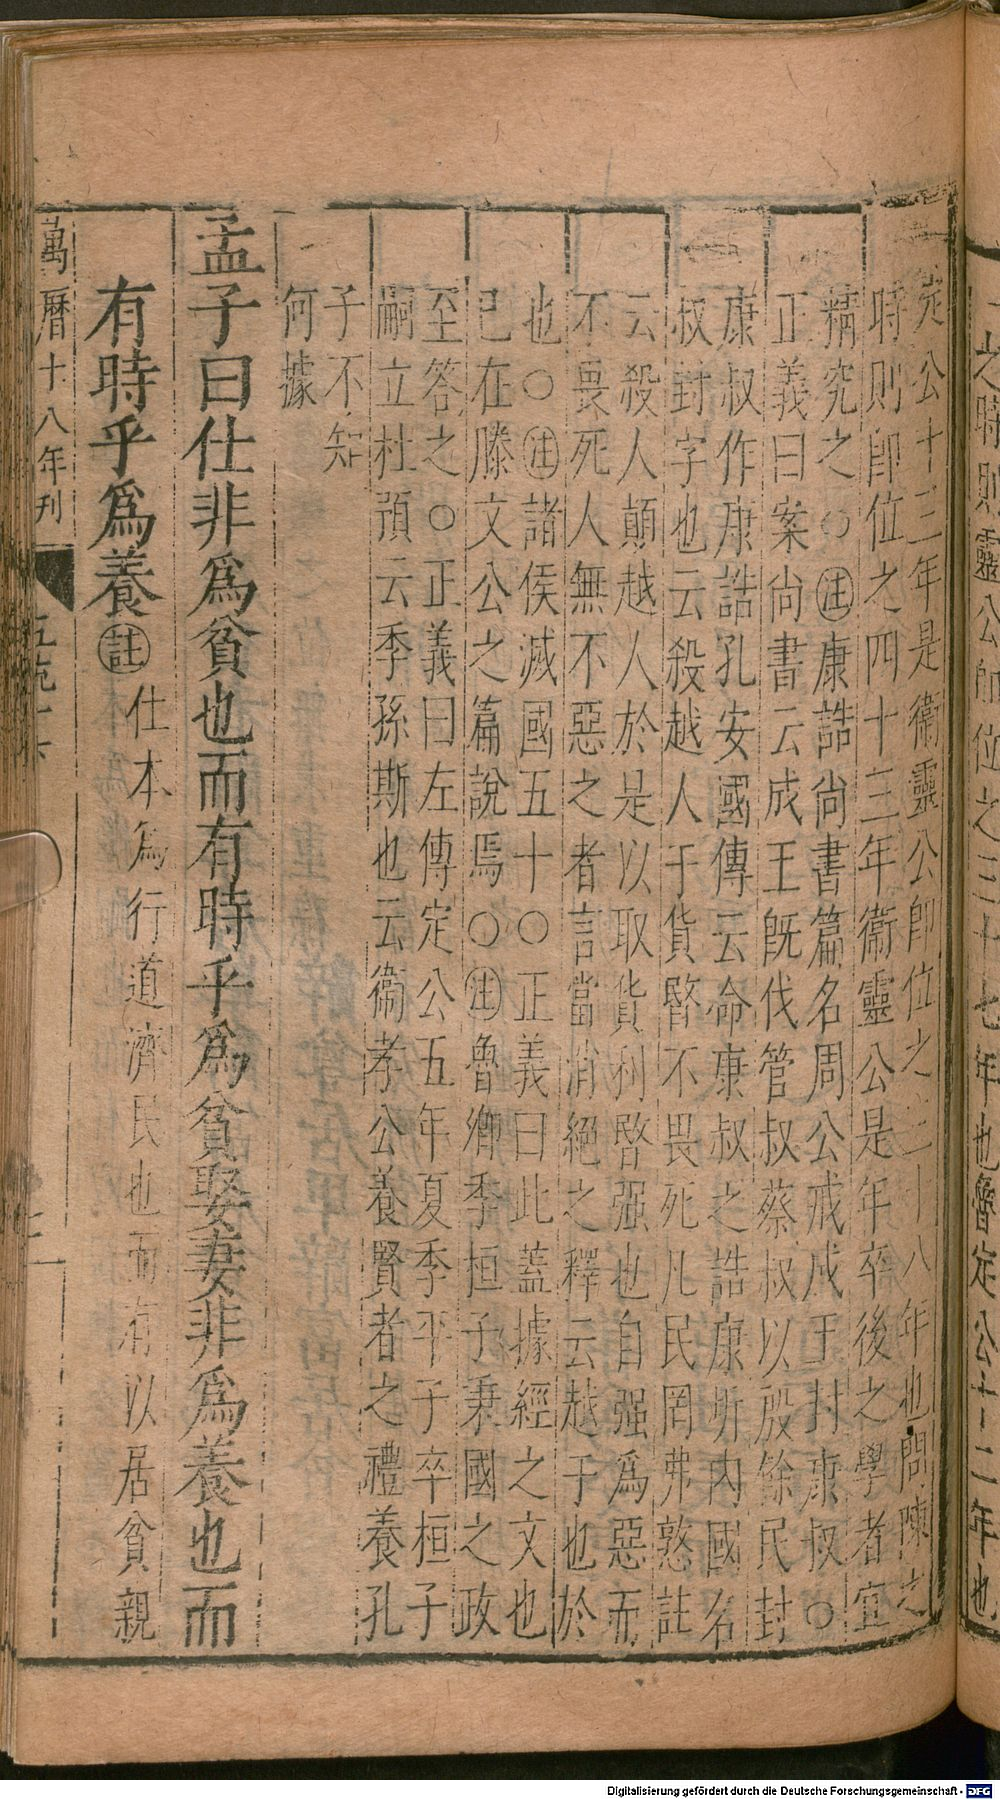 之時則靈公即位之三十七年也魯定公十二年也
定公十三年是衛靈公即位之三十八年也問陳之
時則即位之四十三年衛靈公是年卒後之學者宜
精究之○註康誥尚書篇名周公戒成王封康叔○
正義曰案尚書云成王既伐管叔蔡叔以殷餘民封
康叔作康誥孔安國傳云命康叔之誥康圻內國名
叔封字也云殺越人于貨暋不畏死凡民罔弗憝註
云殺人顛越人於是以取貨利暋强也自强爲惡而
不畏死人無不惡之者言當消絕之釋云越于也於
也○註諸侯滅國五十○正義曰此蓋據經之文也
已在滕文公之篇說焉○註魯卿季桓子秉國之政
至答之○正義曰左傳定公五年夏季平子卒桓子
嗣立杜預云季孫斯也云衛孝公養賢者之禮養孔
子不知
何據
孟子曰仕非爲貧也而有時乎爲貧娶妻非爲養也而
有時乎爲養註仕本爲行道濟民也而有以居貧親
萬曆十八年刊